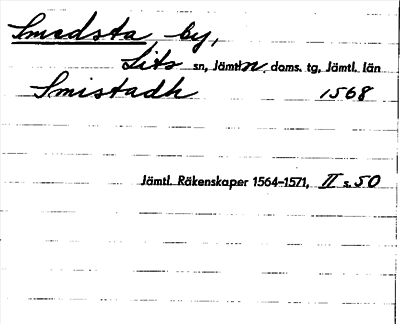 Smedsta by,
Lits sn, Jämtl. n. doms. tg, Jämtl. län
Smistadh 1568
Jämtl. Räkenskaper 1564–1571, II s. 50